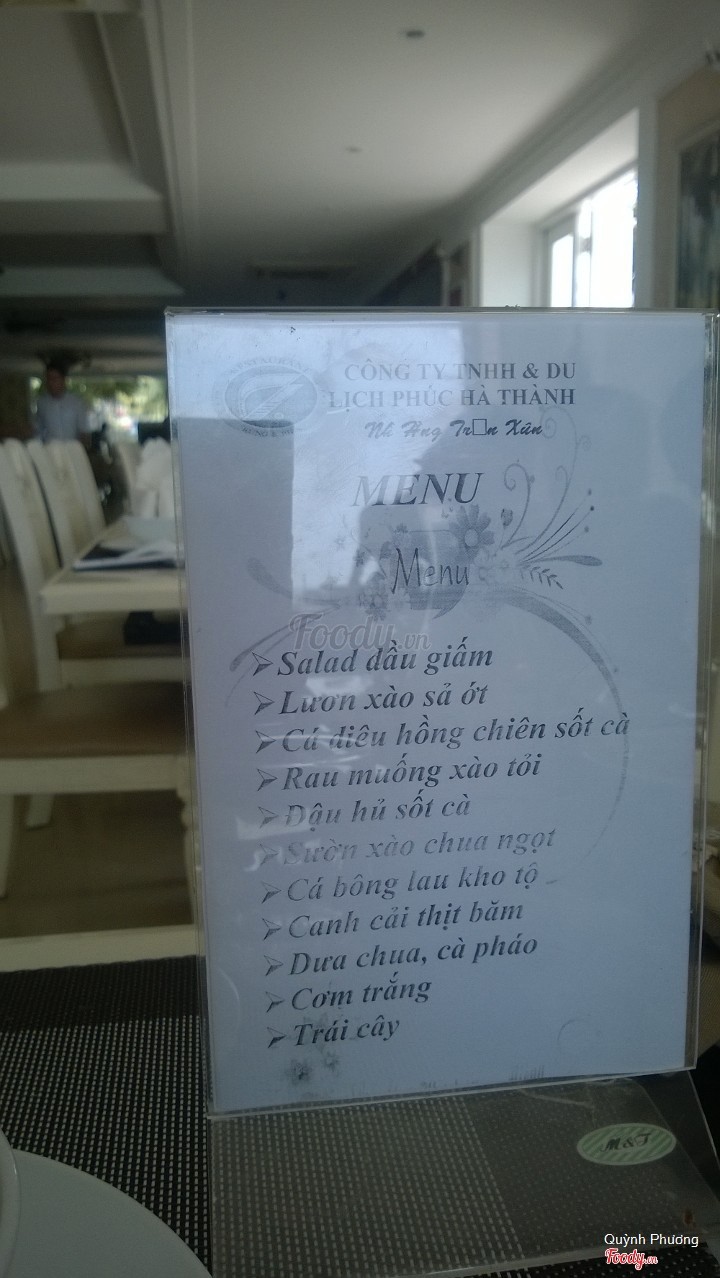 RESTAURANT
CÔNG TY TNHH & DU
LỊCH PHÚC HÀ THÀNH
Nh Hng Tr□n Xun
MENU
Menu
Foody.vn
➢Salad dầu giấm
➢Lươn xào sả ớt
➢Cá diêu hồng chiên sốt cà
➢Rau muống xào tỏi
➢Đậu hủ sốt cà
➢Sườn xào chua ngọt
➢Cá bông lau kho tộ
➢Canh cải thịt băm
➢Dưa chua, cà pháo
➢Cơm trắng
➢Trái cây
M&T
Quỳnh Phương
Foody.vn